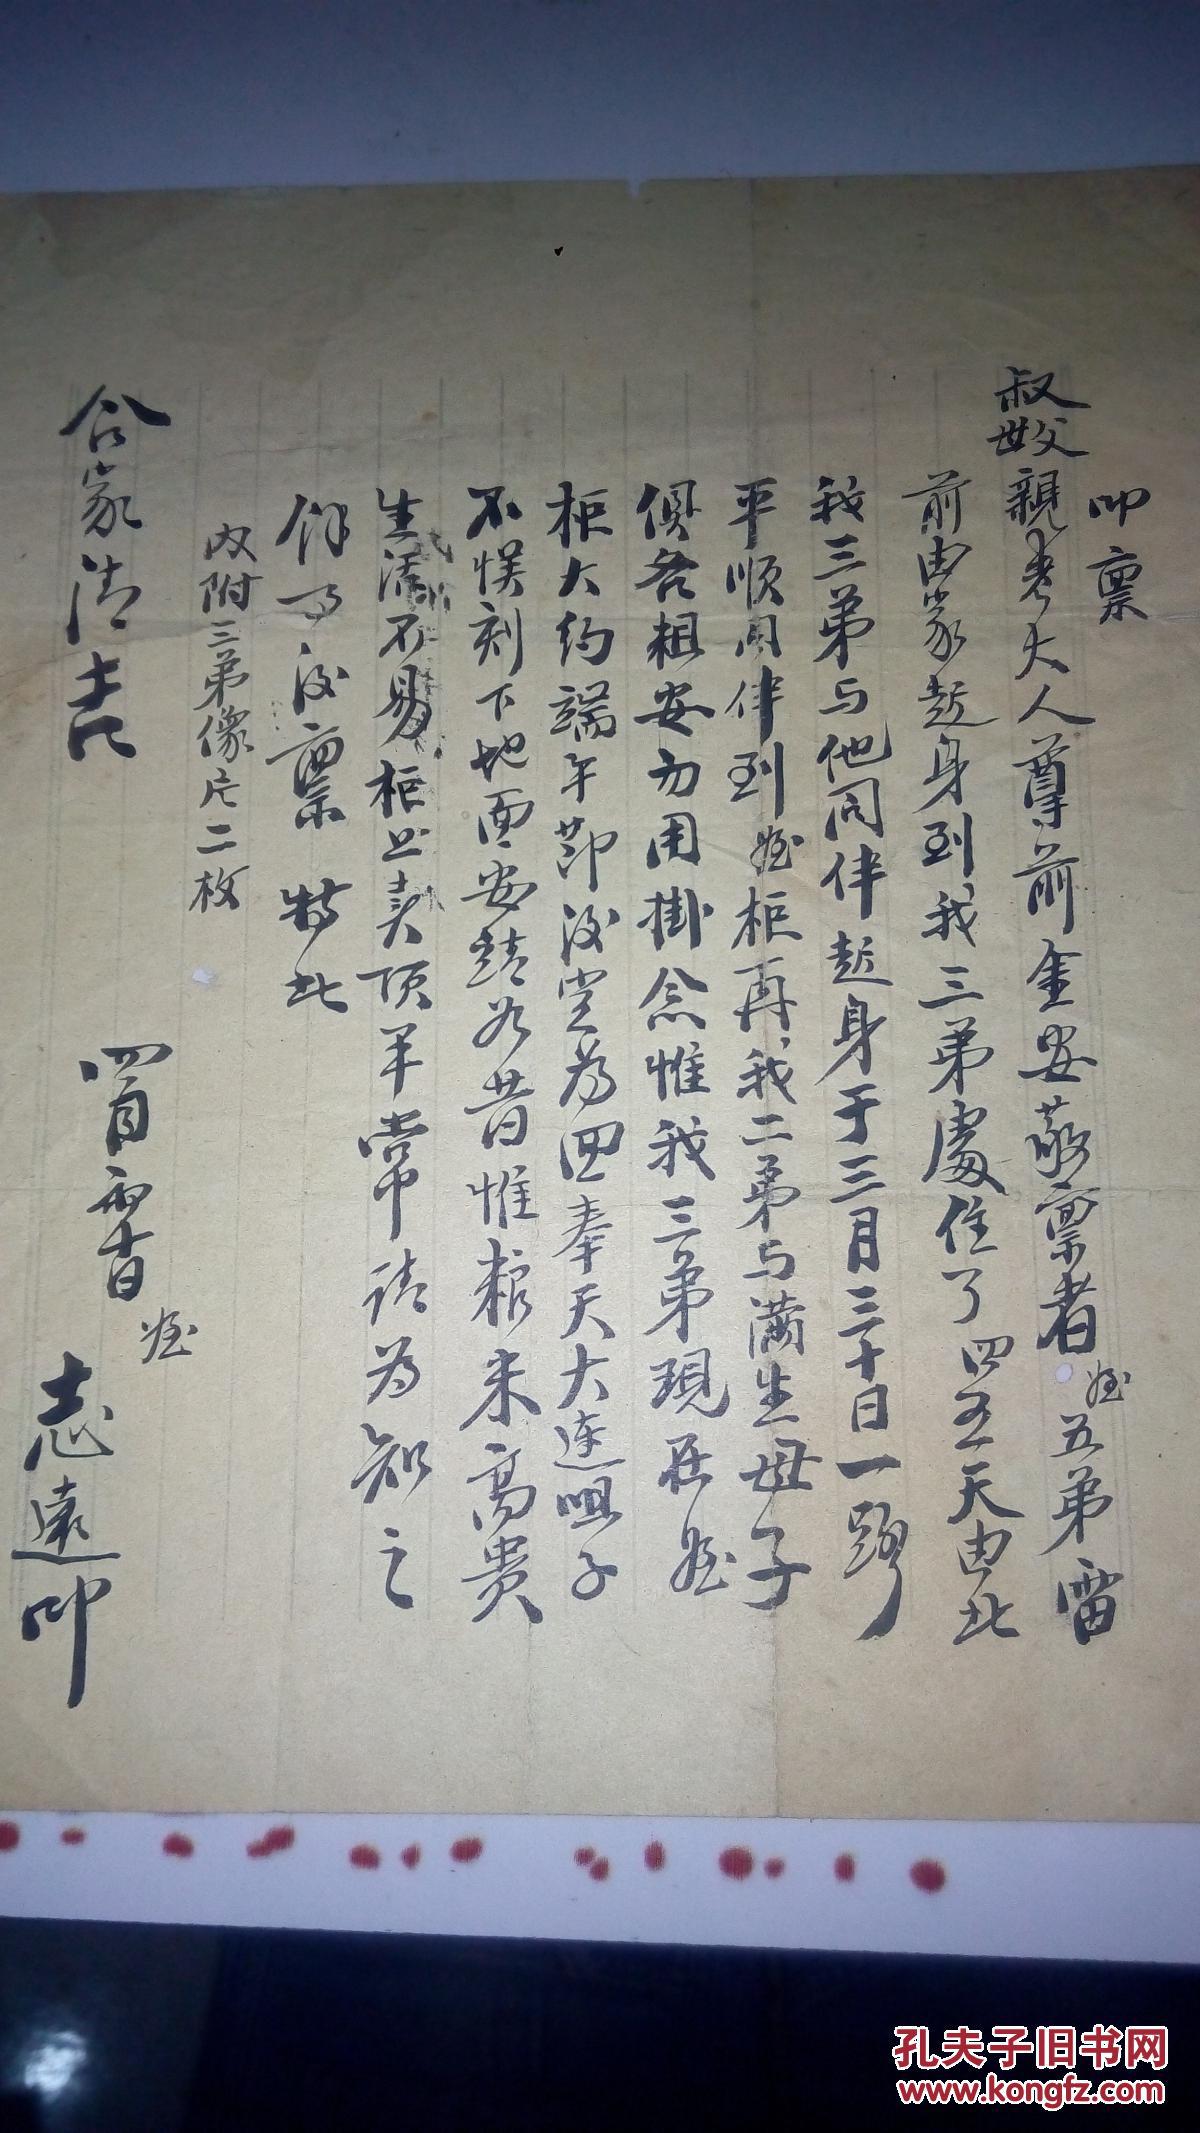 叩禀
叔父母親老大人尊前金安敬禀者姪五弟雷
前由家起身到我三弟處住了四五天由此
我三弟与他同伴起身于三月三十日一路
平順同伴到姪柜再我二弟与满生母子
俱各粗安勿用掛念惟我三弟現在姪
柜大约端午节後定为回奉天大连咀子
不悮刻下地面安靜如昔惟粮米高贵
生活不易柜上卖项平常请为知之
馀事後禀 特此
内附三弟像片二枚
合家清吉
四月初十日 姪
志遠叩
孔夫子旧书网
www.kongfz.com